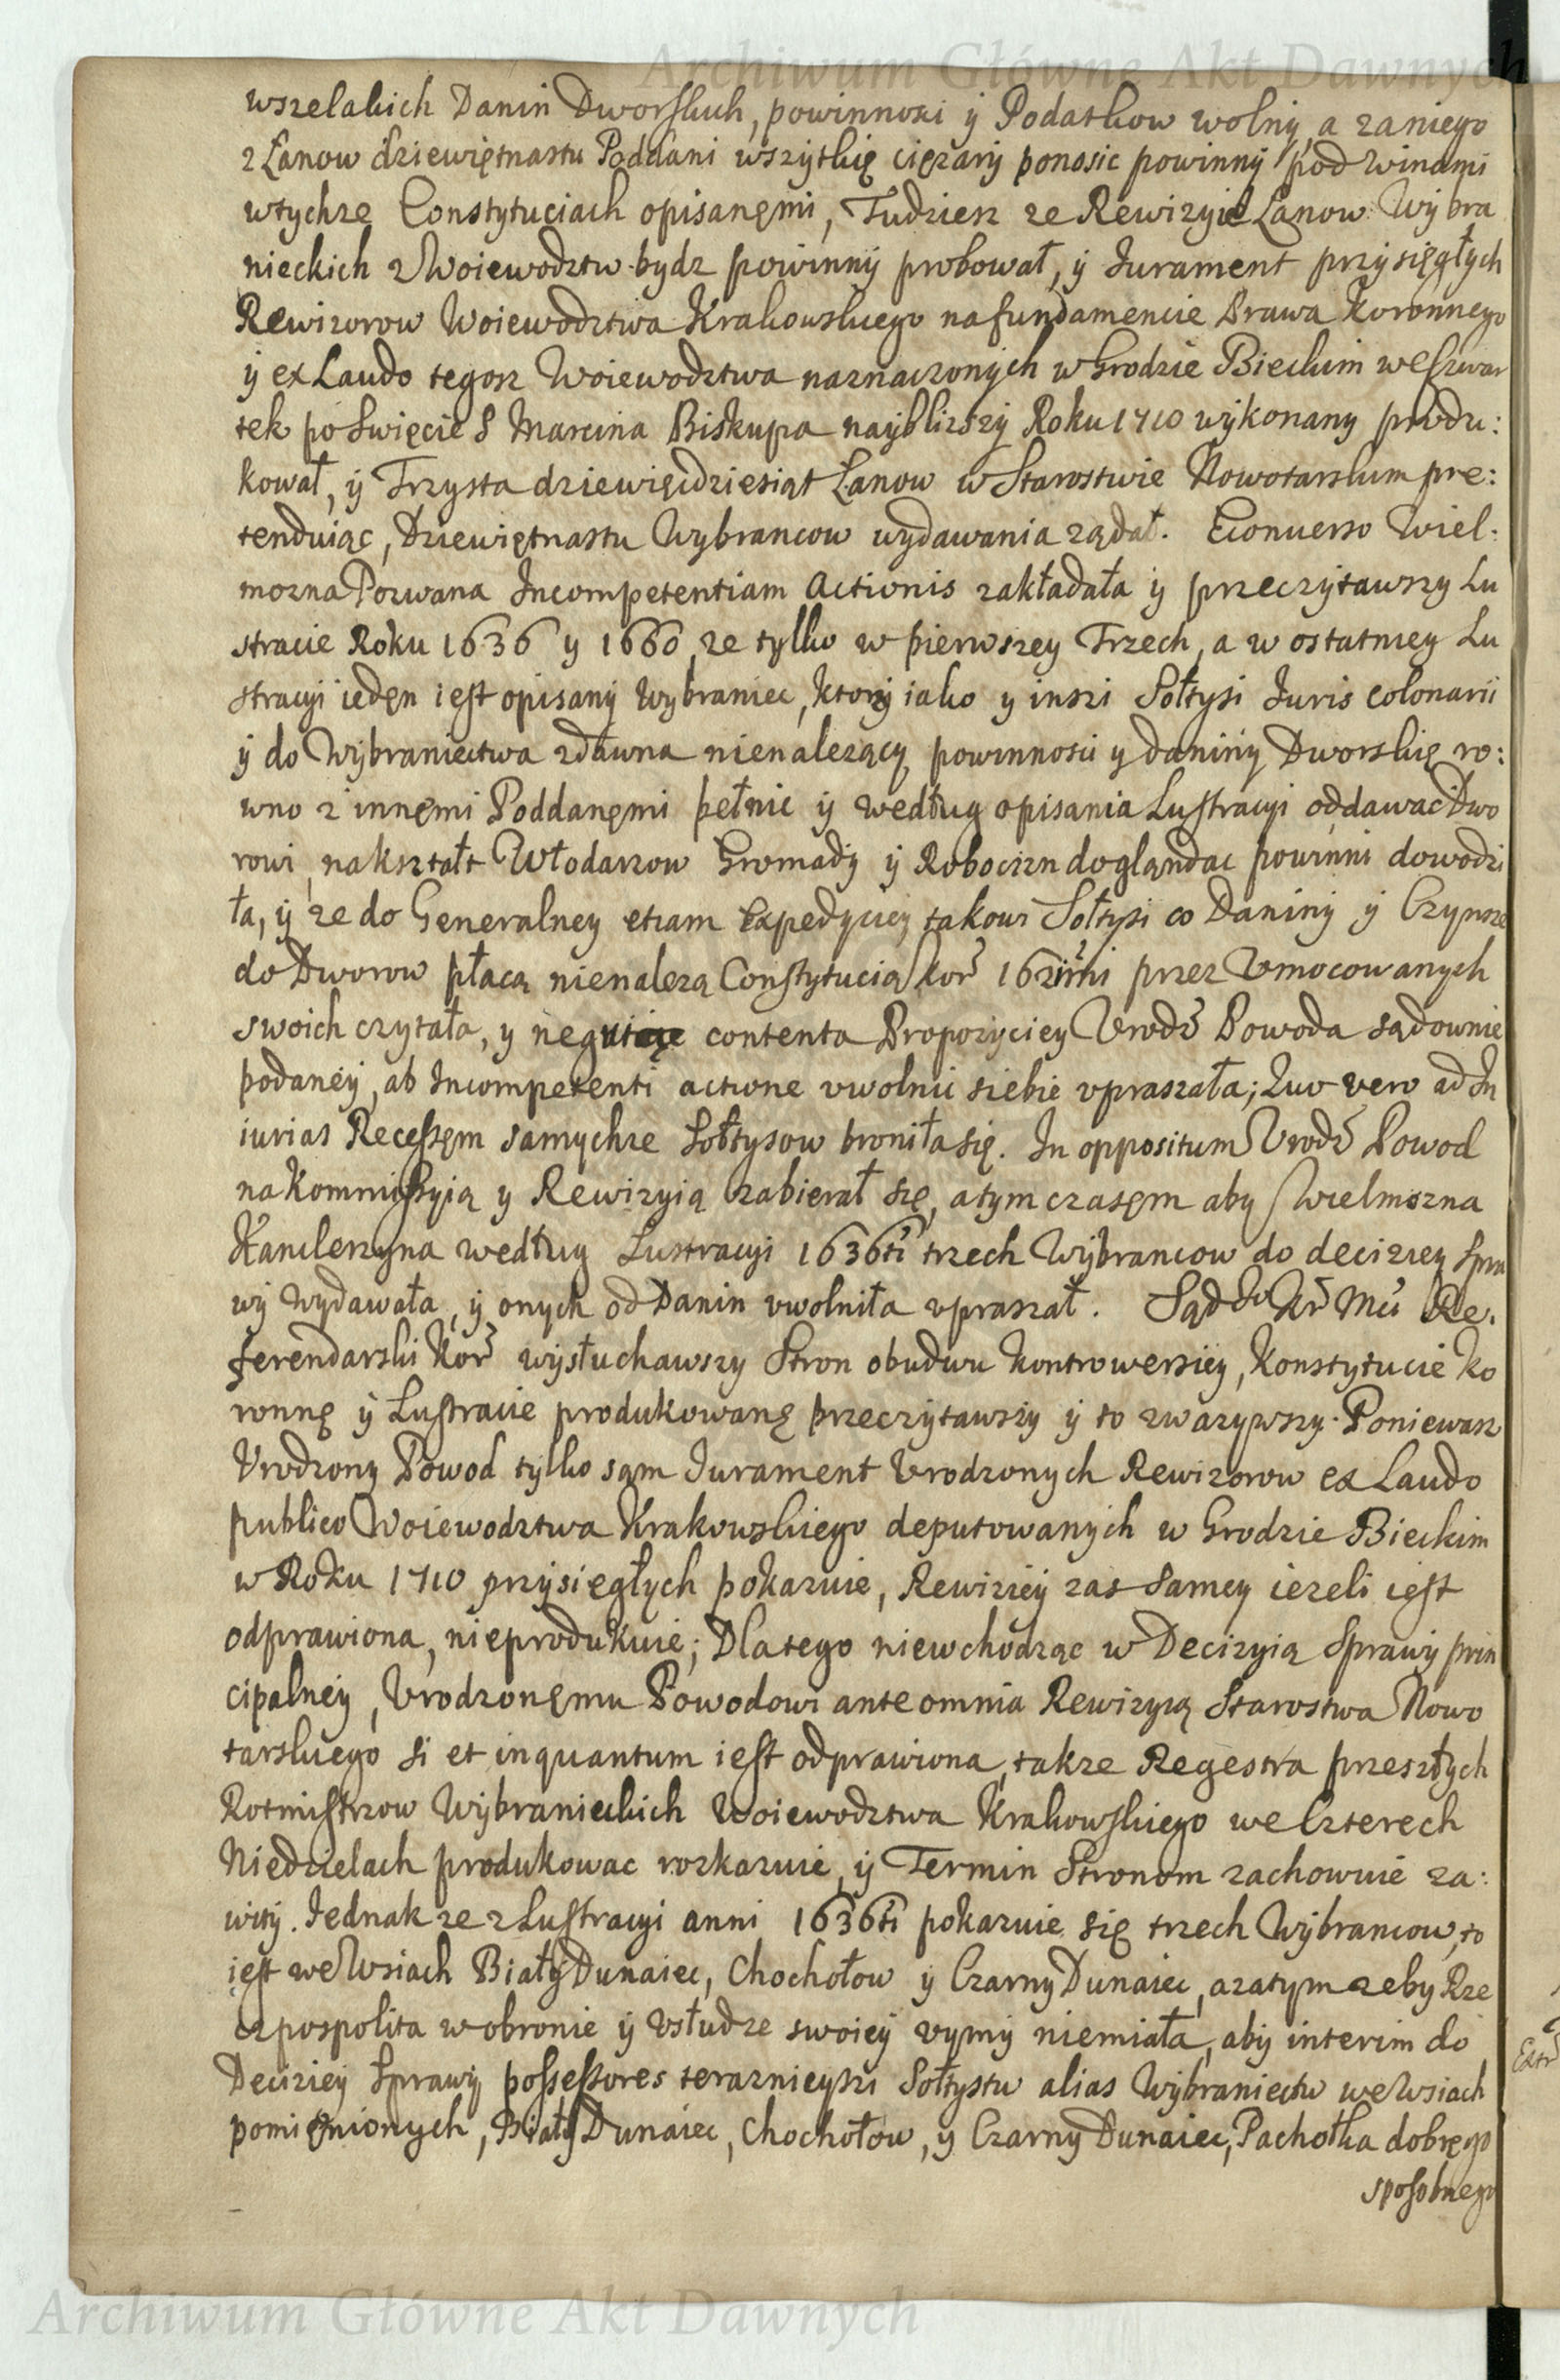 Archiwum Główne Akt Dawnych
wszelakich Danin Dworskich, powinnosci ÿ Podatkow wolnÿ, a zaniego
z Łanow dziewiętnastu Poddani wszÿtkię cięzarÿ ponosic powinnÿ pod winami
wtychze Constytuciach opisanęmi, Tudziesz ze Rewizyie Łanow Wÿbra
nieckich z Woiewodztw bydz powinnÿ probował, ÿ Iurament przÿsięgłÿch
Rewizorow Woiewodztwa Krakowskiego na fundamencie Prawa Koronnego
ÿ ex Laudo tegosz Woiewodztwa naznaczonÿch w Grodzie Bieckim we Czwar
tek po Swięcie S Marcina Biskupa naÿblizszÿ Roku 1710 wÿkonany produ:
kował, ÿ Trzysta dziewięcdziesiąt Łanow w Starostwie Nowotarskim pre:
tenduiąc, Dziewiętnastu Wybrancow wydawania ządał. Econuerso Wiel:
mozna Pozwana Incompetentiam Actionis zakładała ÿ przeczÿtawszy Lu
stracie Roku 1636 y 1660, ze tylko w pierwszey Trzech, a w ostatniey Lu
stracyi iedęn iest opisanÿ Wybraniec, ktorÿ iako y inszi Sołtysi Iuris colonarii
ÿ do Wÿbraniectwa zdawna nienalezącÿ powinnosci y daninÿ Dworskię ro:
wno z innęmi Poddanęmi pełnic ÿ według opisania Lustracyi oddawac Dwo
rowi, nakształt Włodarzow Gromadÿ ÿ Robocizn doglandac powinni dowodzi
ła, ÿ ze do Generalney etiam Expedycieÿ takowi Sołtysi co Daninÿ ÿ Czynsze
do Dworow płacą nienalezą Constytucią Kor 162 przez Vmocowanych
swoich czytała, y contenta Propozyciey Vrodz Powoda sądownie
podaneÿ, ab Incompetenti actione vwolnic siebie vpraszała; Quo vero ad In
iurias Recessęm samychze Sołtysow broniła się. In oppositum Vrodz Powod
na Kommissyią y Rewizyią zabierał się, atym czasęm aby Wielmozna
Kanclerzyna według Lustracyi 1636ti trzech Wÿbrancow do decizieÿ Spra
wÿ wydawała, ÿ onych od Danin vwolniła vpraszał. Sąd Kr Mci Re.
ferendarski Kor wÿsłuchawszy Stron obudwu kontrowersieÿ, Konstytucie Ko
ronnę ÿ Lustracie produkowanę przeczÿtawszÿ ÿ to zwazywszy. Poniewasz
Vrodzony Powod tylko sąm Iurament Vrodzonych Rewizorow ex Laudo
publico Woiewodztwa Krakowskiego deputowanÿch w Grodzie Bieckim
w Roku 1710 przÿsięgłÿch pokazuie, Rewizieÿ zas samey iezeli iest
odprawiona, nieprodukuie; Dlatego niewchodząc w Decizyią Sprawÿ prin
cipalneÿ, Vrodzonęmu Powodowi ante omnia Rewizyią Starostwa Nowo
tarskiego si et inquantum iest odprawiona, takze Regestra przeszłÿch
Rotmistrzow Wÿbranieckich Woiewodztwa Krakowskiego we Czterech
Niedzielach produkowac rozkazuie, ÿ Termin Stronom zachowuie za:
witÿ. Iednak ze z Lustracyi anni 1636ti pokazuie się trzech Wÿbrancow, to
iest we Wsiach Białÿ Dunaiec, Chochołow ÿ Czarny Dunaiec, azatym zeby Rze
czpospolita w obronie ÿ vsłudze swoieÿ vymÿ niemiała, abÿ interim do
Decizieÿ Sprawÿ possessores teraznieyszi Sołtystw alias Wÿbraniectw we Wsiach
pomięnionych, Białÿ Dunaiec, Chochołow, y Czarny Dunaiec, Pachołka dobręgo
sposobnego
Extr
Archiwum Główne Akt Dawnych